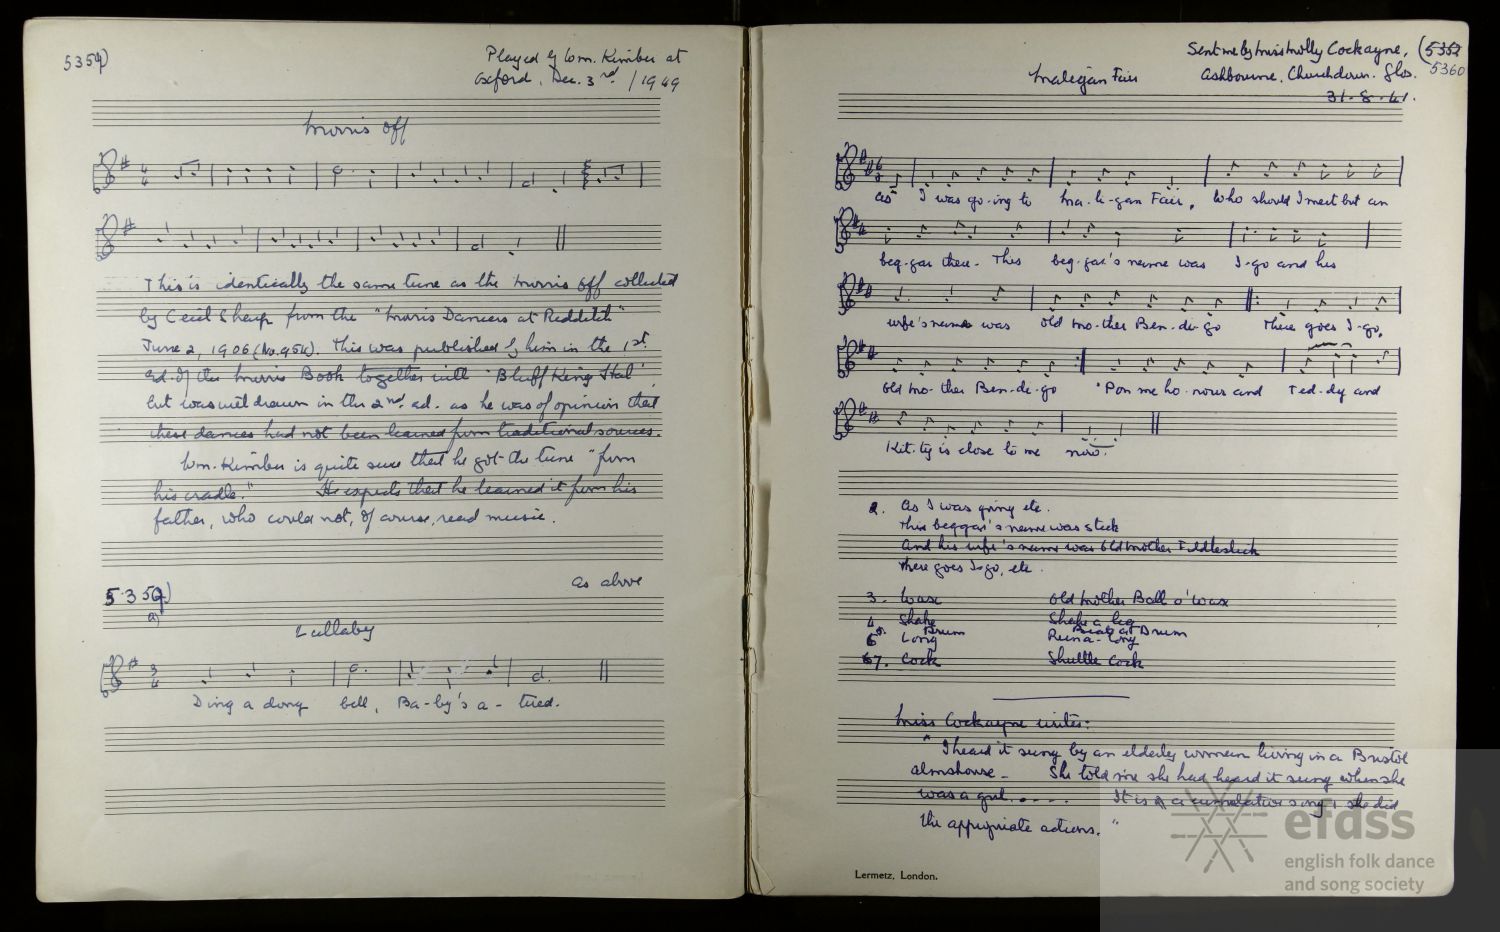 5359)
Played by Wm. Kimber at
Oxford. Dec. 3rd. /1949
Morris Off
This is identically the same tune as the Morris Off collected
by Cecil Sharp from the "Morris Dancers at Redditch"
June 2, 1906 (No. 954). This was published by him in the 1st.
ed. of the Morris Book together with 'Bluff King Hal'
but was withdrawn in the 2nd. ed. as he was of opinion that
these dances had not been learned from traditional sources.
Wm. Kimber is quite sure that he got the tune "from
his cradle." He expects that he learned it from his
father, who could not, of course, read music.
5359)
a)
as above
Lullaby
Ding a dong bell, Ba-by's a - tired.
Sent me by Miss Molly Cockayne, (5357
Malegan Fair
Ashbourne. Churchdown. Glos. 5360
31.8.41.
As I was go-ing to Ma-li-gan Fair, Who should I meet but an
beg-gar there. This beg-gar's name was I-go and his
wife's name was Old Mo-ther Ben-di-go There goes I-go,
Old Mo-ther Ben-di-go 'Pon me ho-nour and Ted-dy and
Kit-ty is close to me now.
2. As I was going etc.
This beggar's name was Stick
And his wife's name was Old Mother Fiddlestick
There goes I-go, etc.
3. Wax Old Mother Ball o' Wax
4 Shake Shake a leg
5. Drum Beat at Drum
6 Long Run a-long
67. Cock Shuttle Cock
Miss Cockayne writes:
"I heard it sung by an elderly woman living in a Bristol
almshouse - She told me she had heard it sung when she
was a girl..... It is a cumulative song & she did
the appropriate actions."
Lermetz, London.
efdss
english folk dance
and song society